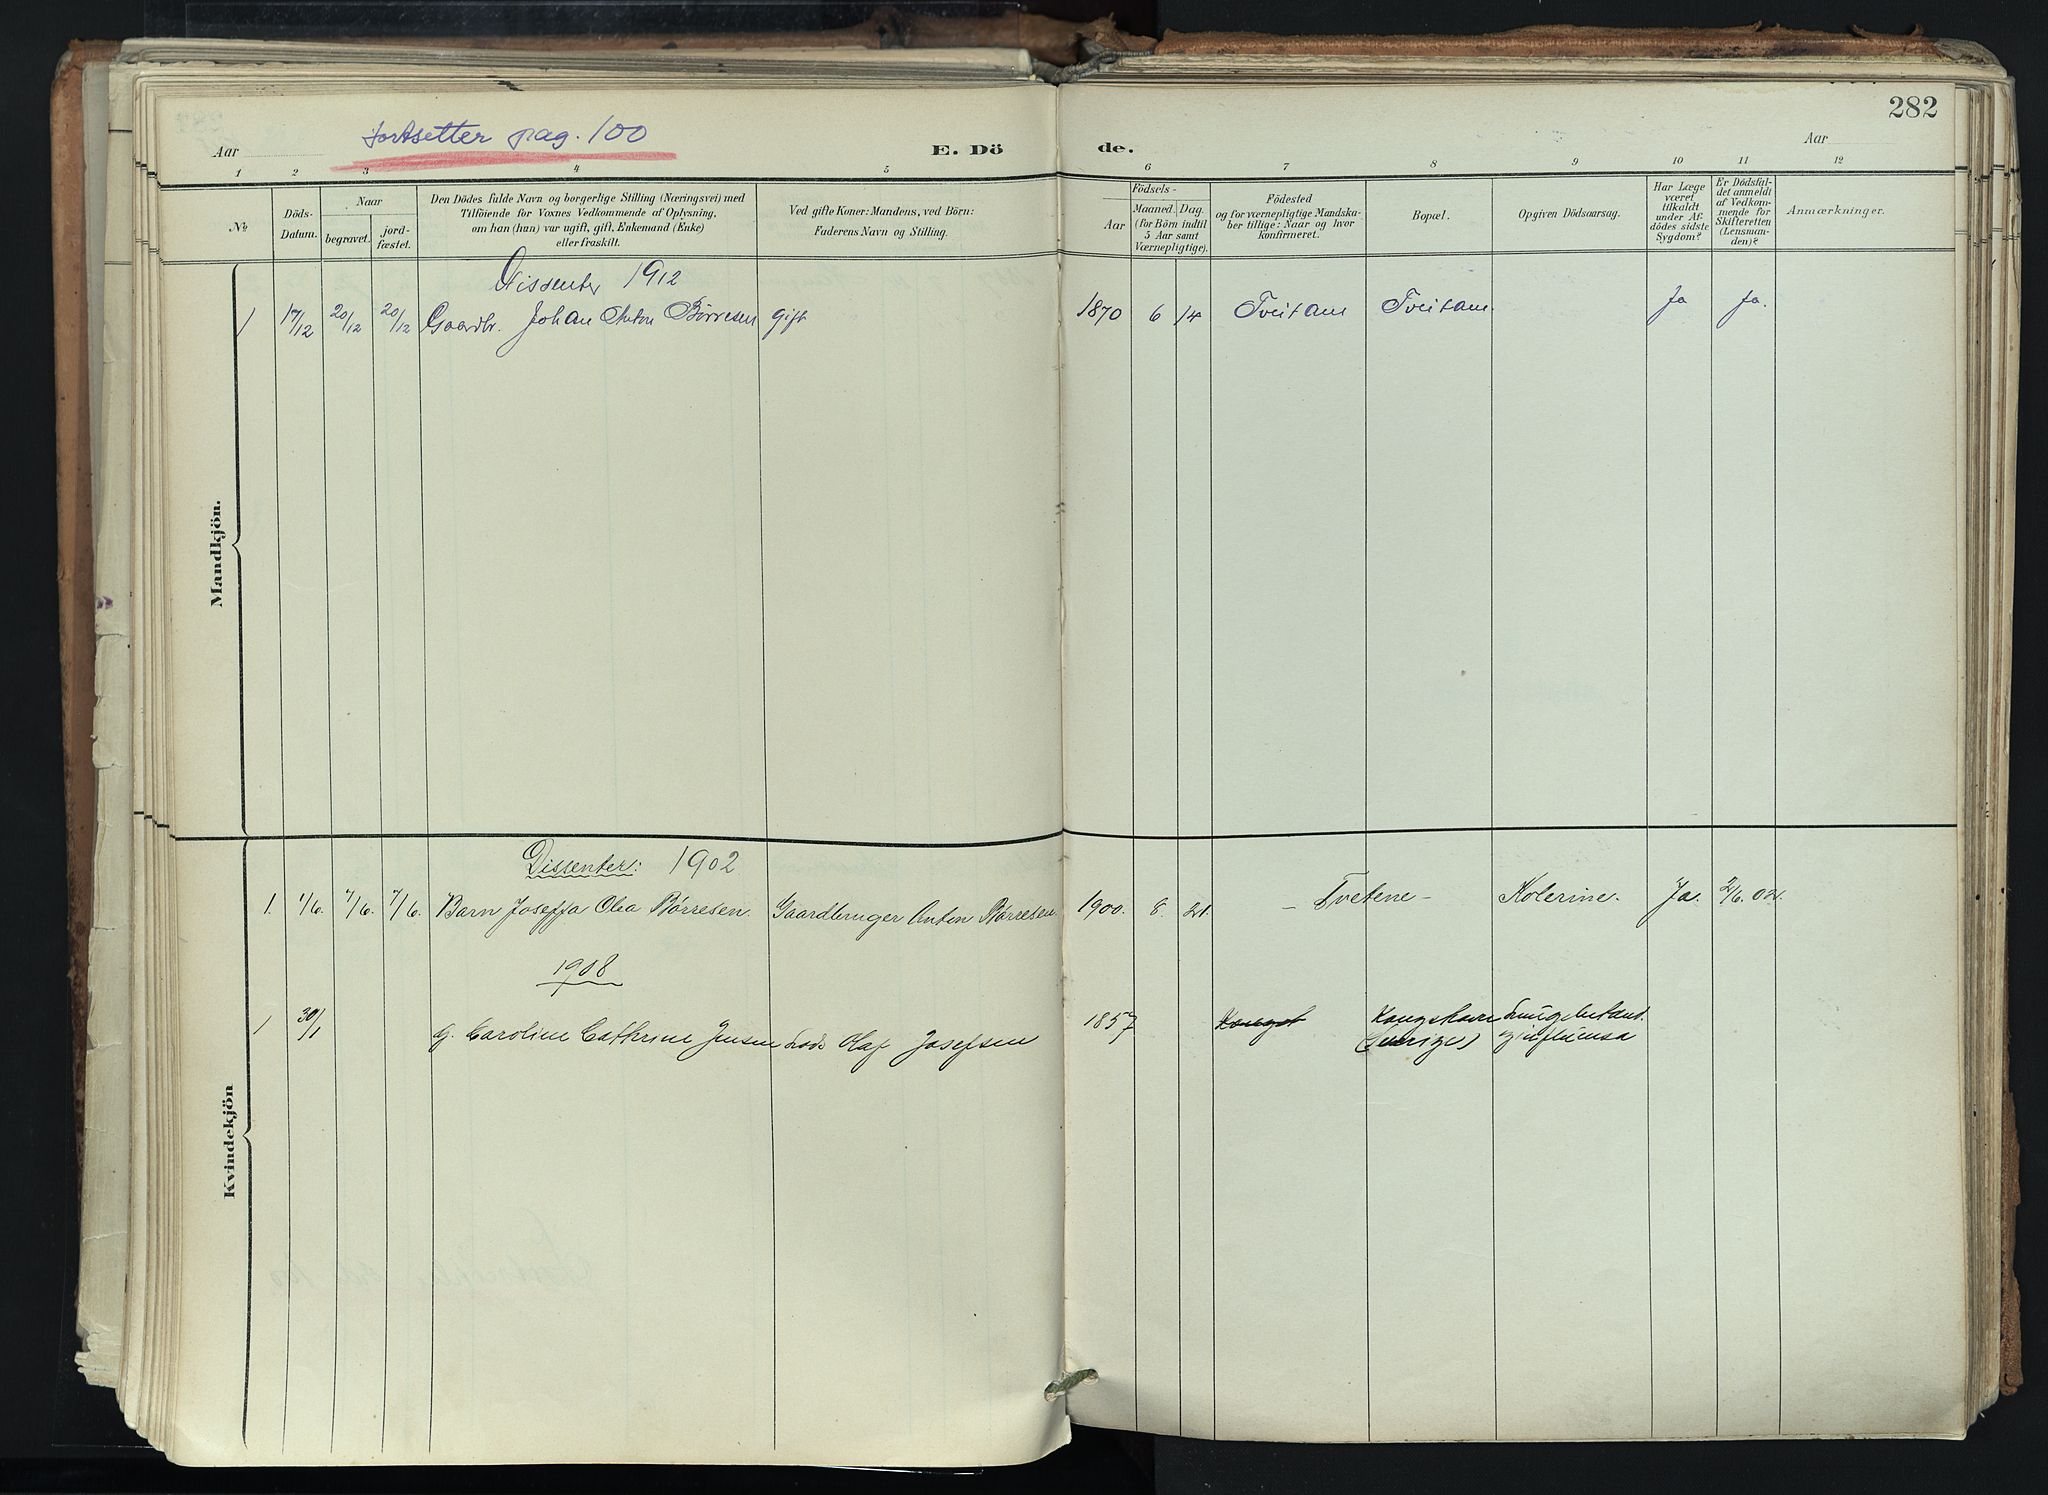 282
fortsetter pag. 100
Aar
E. Dö
de.
Aar
1 2 3 4 5 6 7 8 9 10 11 12
№
Döds-
Datum.
Naar
begravet.
jord-
fæstet.
Den Dödes fulde Navn og borgerlige Stilling (Næringsvei) med
Tilföiende for Voxnes Vedkommende af Oplysning,
om han (hun) var ugift, gift, Enkemand (Enke)
eller fraskilt.
Ved gifte Koner: Mandens, ved Börn:
Faderens Navn og Stilling.
Födsels-
Aar
Maaned. Dag.
(for Börn indtil
5 Aar samt
Værnepligtige).
Födested
og for værnepligtige Mandska-
ber tillige: Naar og hvor
konfirmeret.
Bopæl.
Opgiven Dödsaarsag.
Har Læge
været
tilkaldt
under Af-
dödes sidste
Sygdom?
Er Dödsfal-
det anmeldt
af Vedkom-
mende for
Skifteretten
(Lensman-
den)?
Anmærkninger.
Mandkjön.
Dissenter 1912
1 17/12 20/12 20/12 Gaardbr. Johan Anton Börresen gift 1870 6 14 Tveitane Tveitane. Ja Ja.
Kvindekjön
Dissenter: 1902
1. 1/6. 7/6. 7/6. Barn Joseffa Olea Börresen. Gaardbruger Anton Börresen 1900. 8. 21. – Tvetene – Kolerine. Ja. 2/6. 02.
1908
1 30/1 g. Caroline Cathrine Jensen Olaf Josefsen 1857 Kongst Kongshavn Lungebetænd.
(Sverige) influensa